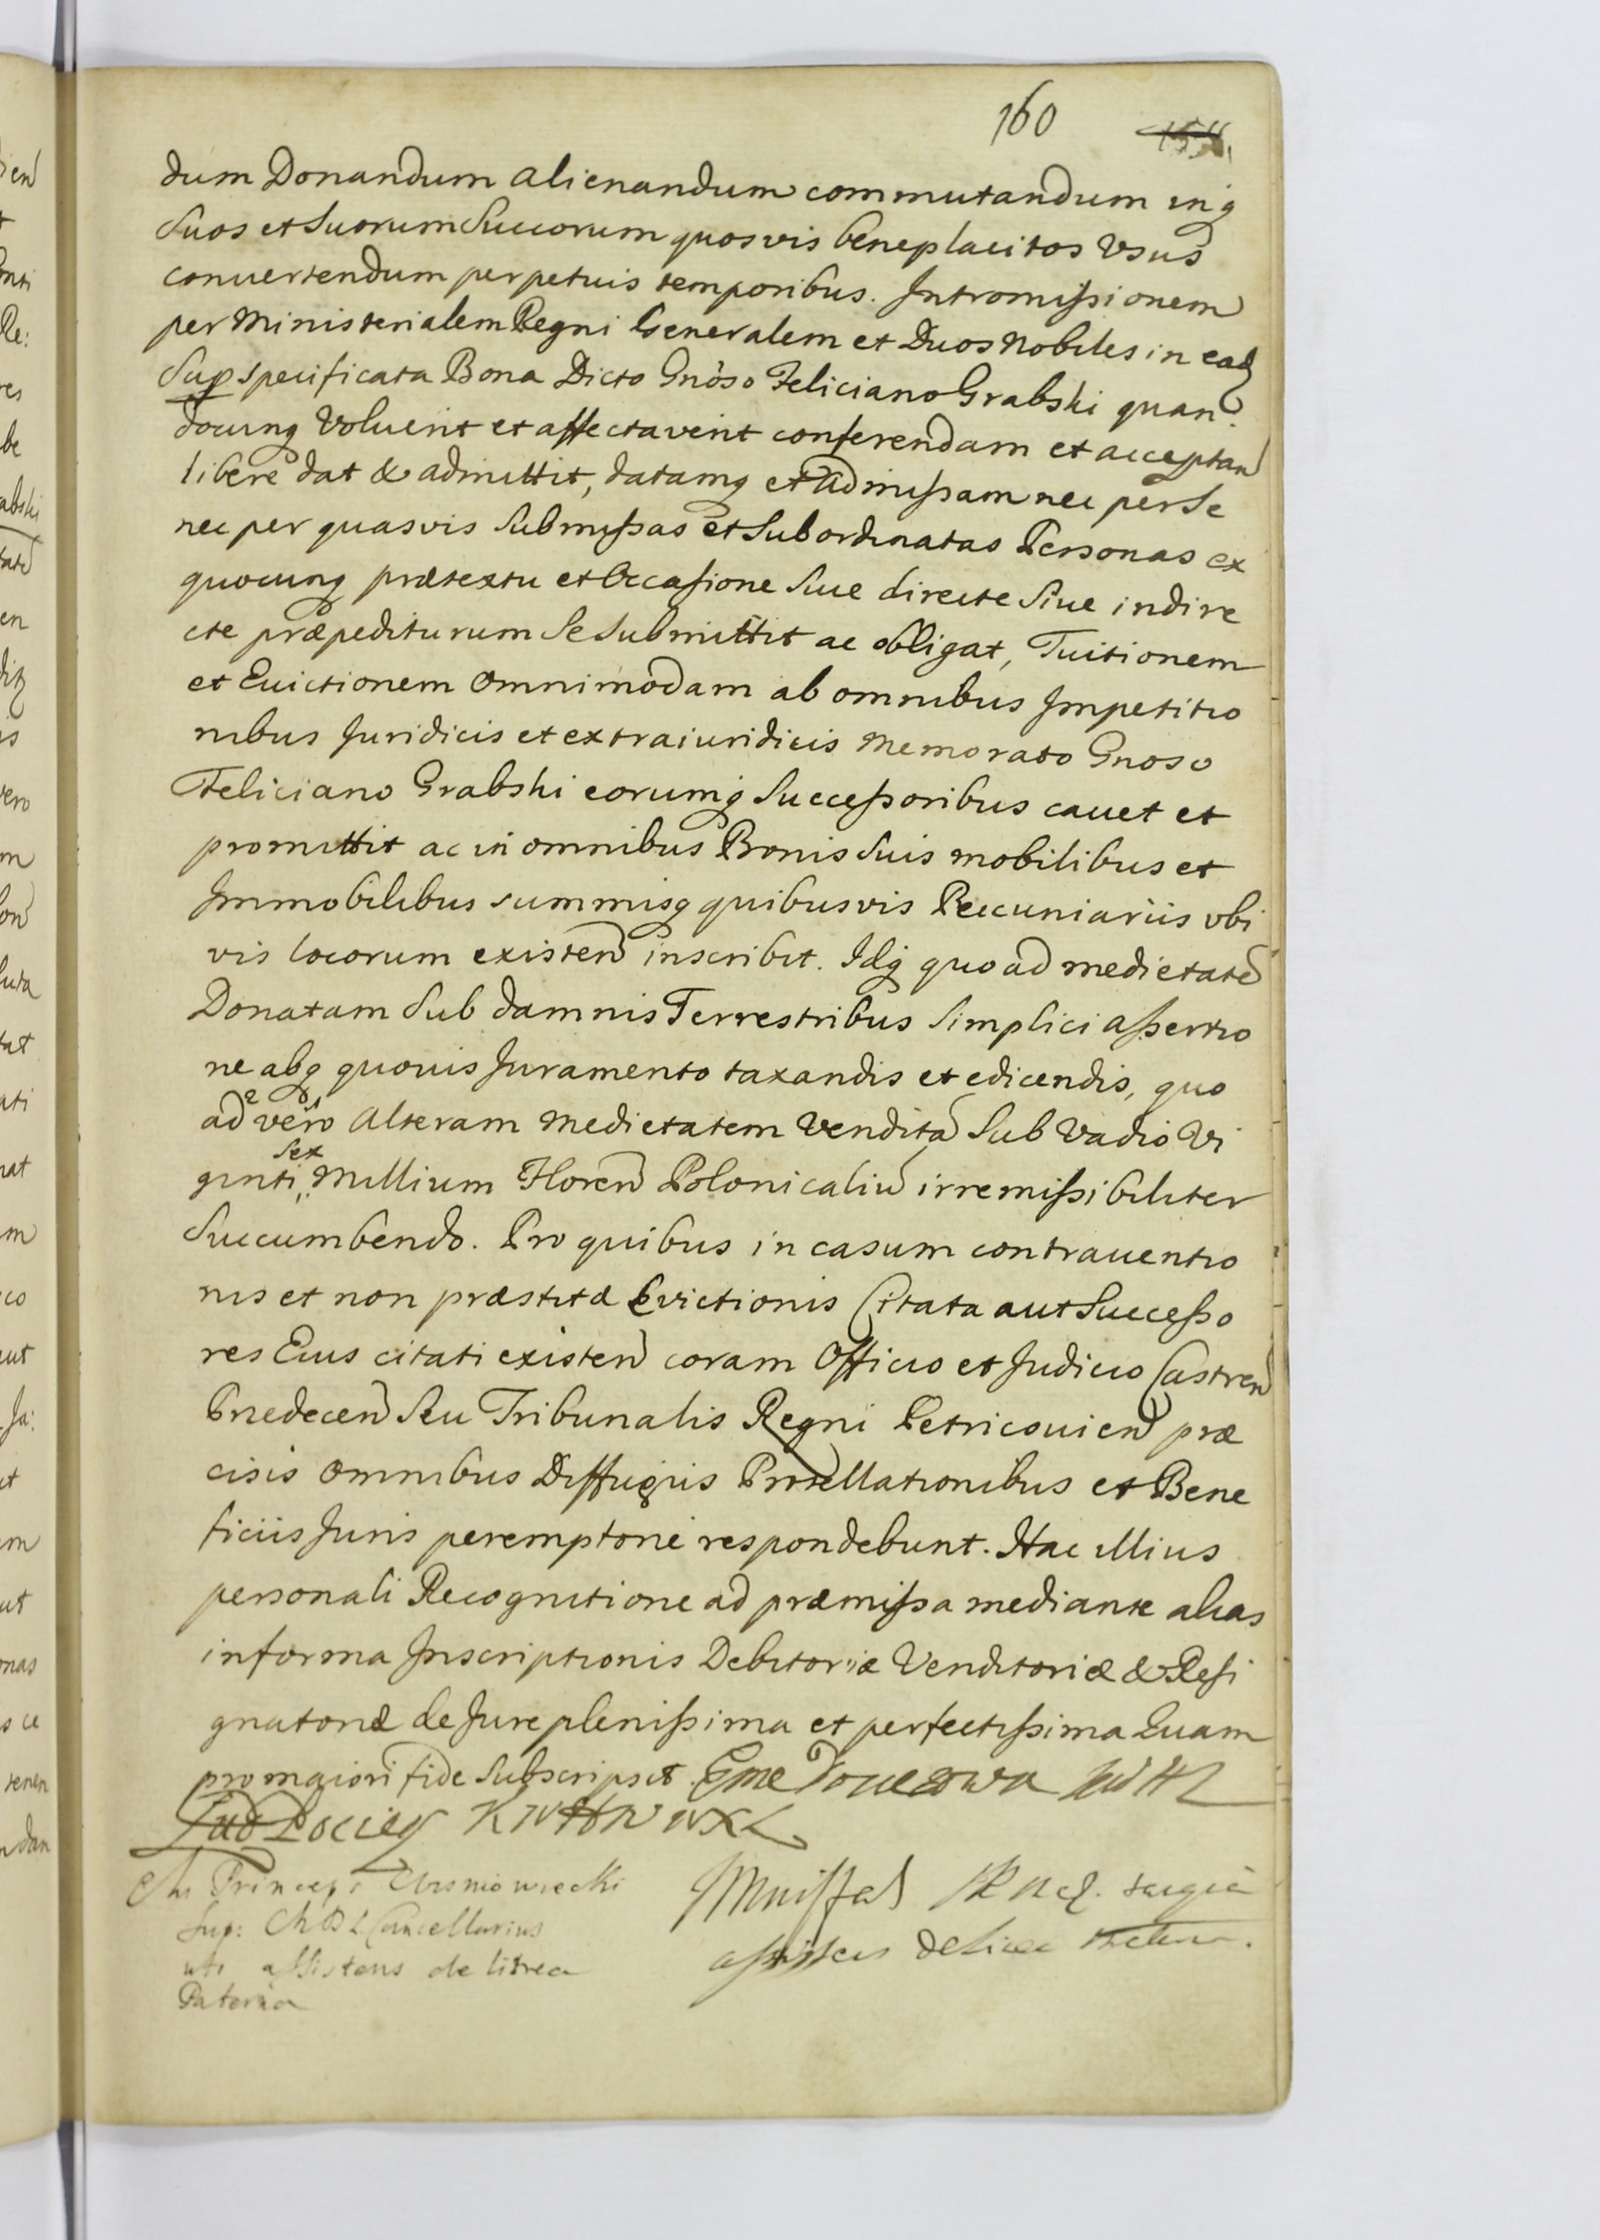 160
dum Donandum alienandum commutandum inq
Suos et Suorum Succorum quosvis beneplacitos Vsus
convertendum perpetuis temporibus. Intromissionem
per Ministerialem Regni Generalem et Duos Nobiles in ead
Sup specificata Bona Dicto Gnoso Feliciano Grabski quan
docunq Voluerit et affectaverit conferendam et acceptan
libere dat & admittit, datamq et admissam nec per Se
nec per quasvis Submissas et Subordinatas Personas ex
quocunq prætextu et Occasione Siue directe Siue indire
cte præpediturum Se Submittit ac obligat, Tuitionem
et Euictionem Omnimodam ab omnibus Impetitio
nibus Juridicis et extraiuridicis memorato Gnoso
Feliciano Grabski eorumq Successoribus cauet et
promittit ac in omnibus Bonis Suis mobilibus et
Immobilibus summisq quibusvis Pecuniariis vbi
vis locorum existen inscribit. Idq quo ad medietate
Donatam Sub damnis Terrestribus Simplici assertio
ne absq quouis Juramento taxandis et edicendis, quo
ad vero Alteram Medietatem Vendita Sub Vadio Vi
Sex
ginti Millium Floren Polonicaliu irremissibiliter
Succumbendo. Pro quibus in casum contrauentio
nis et non præstitæ Evictionis Citata aut Successo
res Eius citati existen coram Officio et Judicio Castren
Brzedecen Seu Tribunalis Regni Petricouien præ
cisis Omnibus Diffugiis Procellationibus et Bene
ficiis Juris peremptorie respondebunt. Hac illius
personali Recognitione ad præmissa mediante alias
in forma Inscriptionis Debitoriæ Venditoriæ & Resi
gnatoriæ de Jure plenissima et perfectissima Quam
pro maiori fide Subscripsit.
Lud Pociey
Princeps Wisniowiecki
Sup: M D L Cancellarius
uti assistens de litrea
Paterna